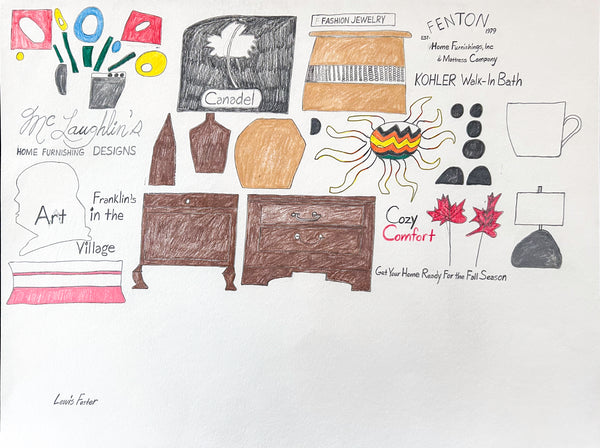 FASHION JEWELRY
FENTON
EST. 1979
Home Furnishings, Inc
& Mattress Company
KOHLER Walk-In Bath
Canadel
McLaughlin's
HOME FURNISHING DESIGNS
Art
Franklin's
in the
Village
Cozy
Comfort
Get Your Home Ready For the Fall Season
Louis Foster